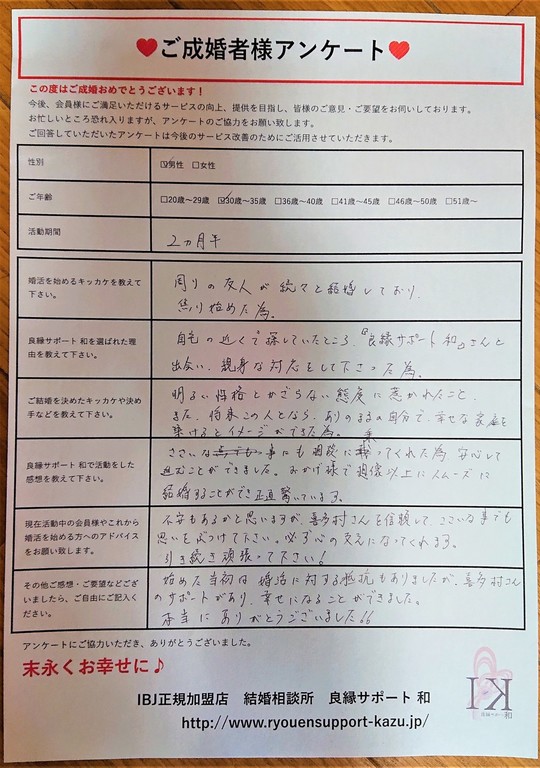 ♥ご成婚者様アンケート♥
この度はご成婚おめでとうございます！
今後、会員様にご満足いただけるサービスの向上、提供を目指し、皆様のご意見・ご要望をお伺いしております。
お忙しいところ恐れ入りますが、アンケートのご協力をお願い致します。
ご回答していただいたアンケートは今後のサービス改善のためにご活用させていただきます。
性別
☑男性 □女性
ご年齢
□20歳～29歳 ☑30歳～35歳 □36歳～40歳 □41歳～45歳 □46歳～50歳 □51歳～
活動期間
2ヵ月半
婚活を始めるキッカケを教えて
下さい。
周りの友人が続々と結婚しており、
焦り始めた為。
良縁サポート 和を選ばれた理
由を教えて下さい。
自宅の近くで探していたところ、『良縁サポート 和』さんと
出会い、親身な対応をして下さった為。
ご結婚を決めたキッカケや決め
手などを教えて下さい。
明るい性格とかざらない態度に惹かれたこと、
また、将来この人となら、ありのままの自分で、幸せな家庭を
築けるとイメージができた為。
良縁サポート 和で活動をした
感想を教えて下さい。
ささいな事にも相談に乗ってくれた為、安心して
進むことができました。おかげ様で想像以上にスムーズに
結婚することができ正直驚いています。
現在活動中の会員様やこれから
婚活を始める方へのアドバイス
をお願い致します。
不安もあるかと思いますが、喜多村さんを信頼して、ささいな事でも
思いをぶつけて下さい。必ず心の支えになってくれます。
引き続き頑張って下さい！
その他ご感想・ご要望などござ
いましたら、ご自由にご記入く
ださい。
始めた当初は婚活に対する抵抗もありましたが、喜多村さん
のサポートがあり、幸せになることができました。
本当にありがとうございました!!
アンケートにご協力いただき、ありがとうございました。
末永くお幸せに♪
IBJ正規加盟店 結婚相談所 良縁サポート 和
http://www.ryouensupport-kazu.jp/
KI
良縁サポート 和